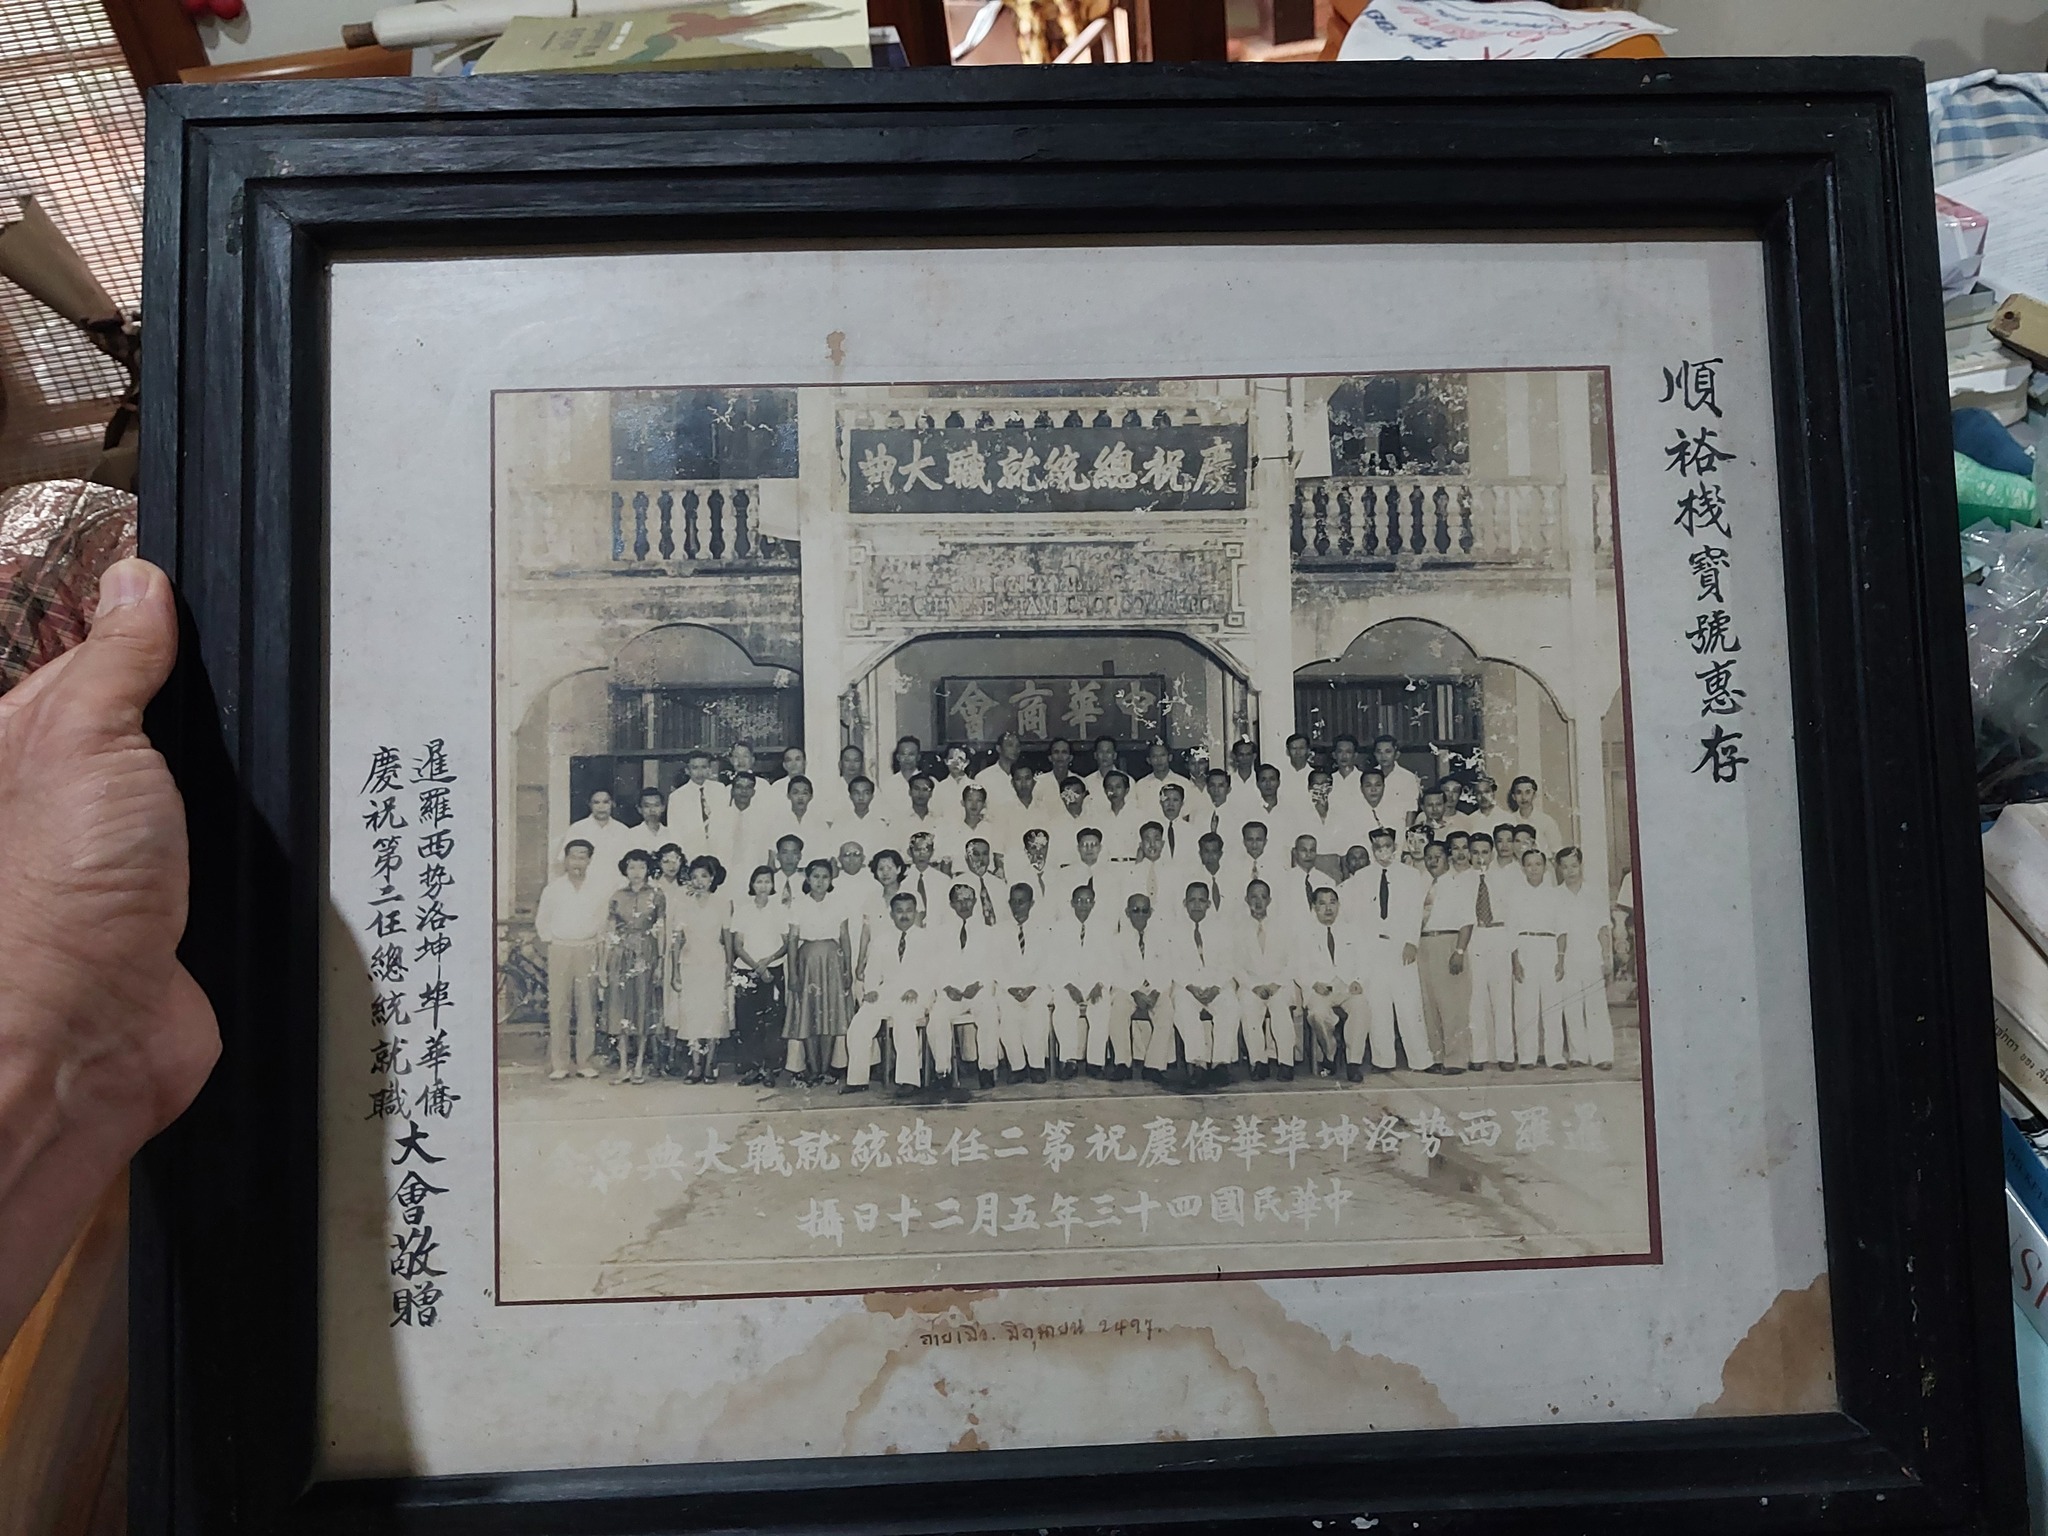 順裕棧寶號惠存
慶祝總統就職大典
CHINESE CHAMBER OF COMMERCE
中華商會
暹羅西势洛坤埠華僑慶祝第二任總統就職大典
中華民國四十三年五月二十日攝
暹羅西势洛坤埠華僑
慶祝第二任總統就職
大會敬贈
มิถุนายน 2497.